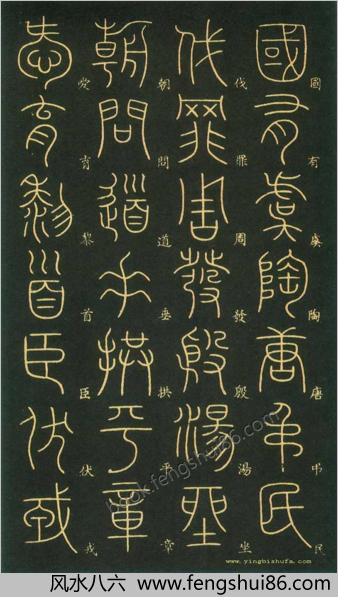 國有虞陶唐弔民
國有虞陶唐弔民
伐罪周發殷湯坐
伐罪周發殷湯坐
朝問道垂拱平章
朝問道垂拱平章
愛育黎首臣伏戎
愛育黎首臣伏戎
book.fengshui86.com
www.yingbishufa.com
风水八六 www.fengshui86.com